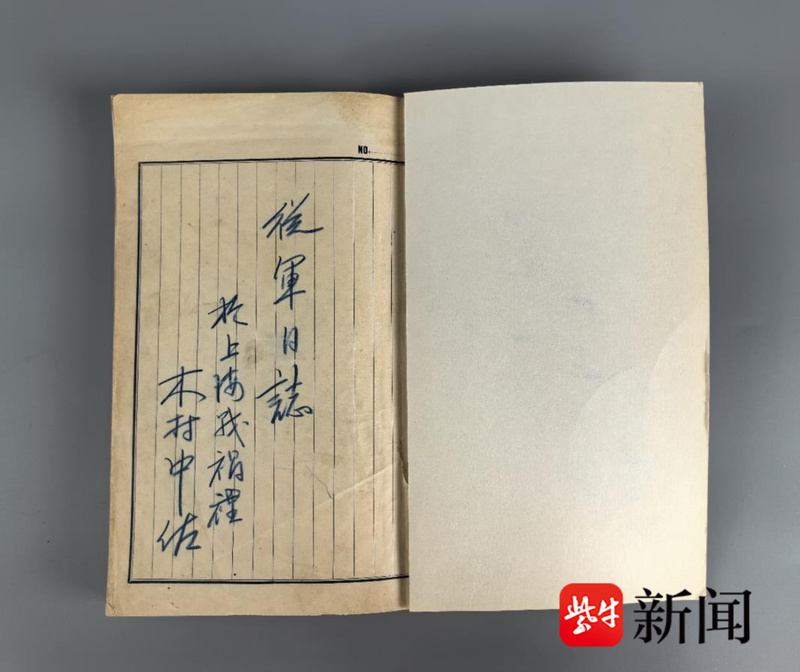 NO.
從軍日誌
於上海戦禍裡
木村中佐
紫牛
新闻